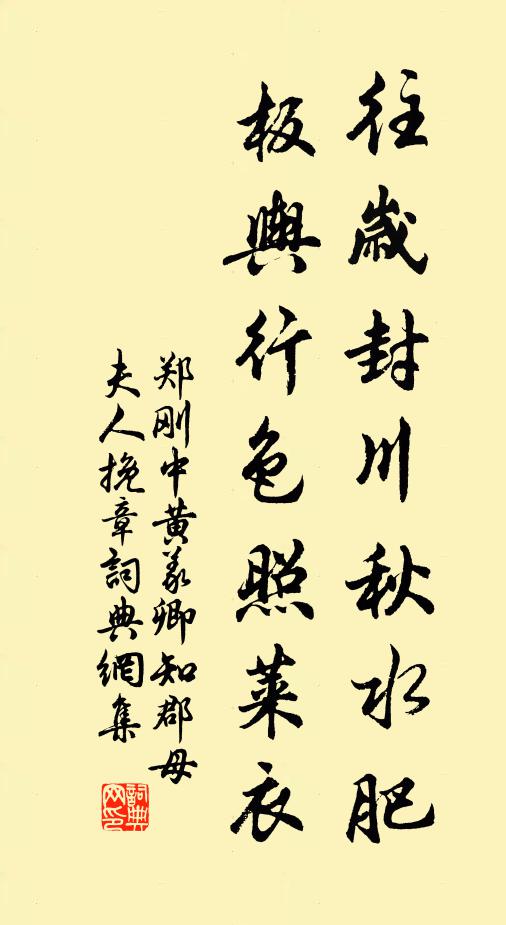 往歲封川秋水肥
板輿行色照萊衣
郑刚中黄义卿知郡母
夫人挽章詞典網集
詞典网印